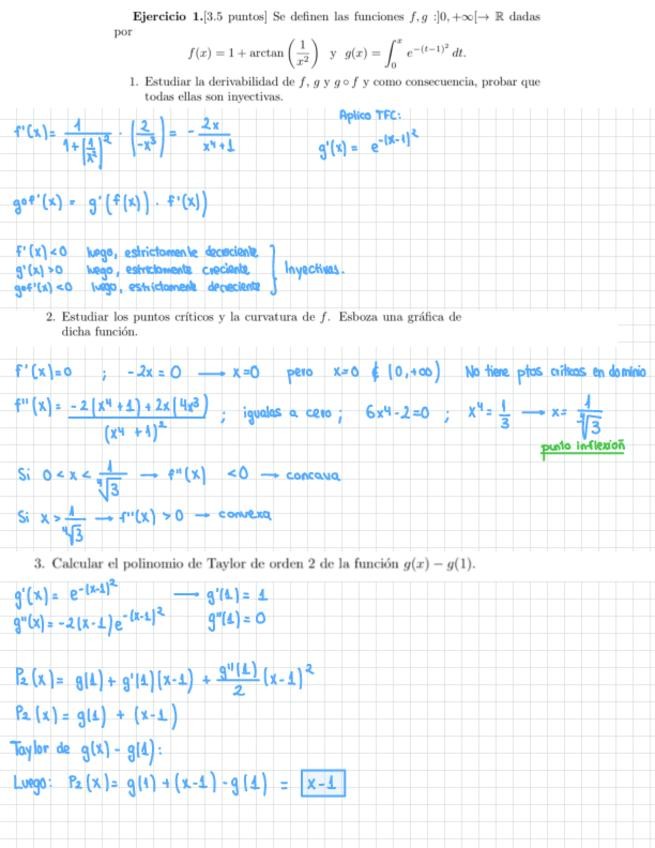 Ejercicio 1.[3.5 puntos] Se definen las funciones f, g :]0, +∞[→ ℝ dadas
por
f(x) = 1 + arctan (1/x²) y g(x) = ∫₀ˣ e^{-(t-1)²} dt.
1. Estudiar la derivabilidad de f, g y g ∘ f y como consecuencia, probar que
todas ellas son inyectivas.
Aplico TFC:
f'(x) = 1/(1+(1/x²)²) · (2/-x³) = - 2x/(x⁴+1)
g'(x) = e^{-(x-1)²}
gof'(x) = g'(f(x)) · f'(x))
f'(x) < 0 luego, estrictamente decreciente
g'(x) > 0 luego, estrictamente creciente
Inyectivas.
gof'(x) < 0 luego, estrictamente decreciente
2. Estudiar los puntos críticos y la curvatura de f. Esboza una gráfica de
dicha función.
f'(x)=0 ; -2x = 0 → x=0 pero x=0 ∉ (0,+∞) No tiene ptos críticos en dominio
f''(x) = (-2(x⁴+1)+2x(4x³))/(x⁴+1)² ; igualas a cero ; 6x⁴-2=0 ; x⁴ = 1/3 → x = 1/⁴√3
punto inflexión
Si 0 < x < 1/⁴√3 → f''(x) < 0 → concava
Si x > 1/⁴√3 → f''(x) > 0 → convexa
3. Calcular el polinomio de Taylor de orden 2 de la función g(x) − g(1).
g'(x) = e^{-(x-1)²} → g'(1) = 1
g''(x) = -2(x-1)e^{-(x-1)²} g''(1) = 0
P₂(x) = g(1) + g'(1)(x-1) + g''(1)/2 (x-1)²
P₂(x) = g(1) + (x-1)
Taylor de g(x) - g(1):
Luego: P₂(x) = g(1) + (x-1) - g(1) = x-1